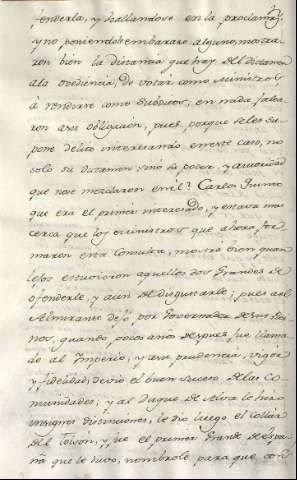 fenderla, y hallandose en la proclamaz.n
y no poniendole embarazo alguno, mostra-
ron bien la distancia que hay del dictamen
ala ovediencia, de votar como Ministros
à rendirse como subditos; en nada falta-
ron asu obligacion, pues porque se les su-
pone delito interesando en este caso, no
solo su dictamen, sino su poder, y autoridad
que no se mezclaron en el? Carlos Quinto
que era el primer interesado, y estava mas
cerca que los ministros que ahora for-
maron esta Consulta, mostró bien quan
lejos estuvieron aquellos dos Grandes de
ofenderle, y aun de disgustarle; pues al
Almirante dejó por Governador de sus Rei-
nos, quando pocos años despues fue llama-
do al Imperio, y asu prudencia, vigor
y fidelidad, devió el buen suceso de las Co-
munidades; y al Duque de Alva lo hizo
insignes distinciones, le dio luego el Collar
del Toison, y fue el primer Grande de Espa-
ña que le tuvo, nombrole para que